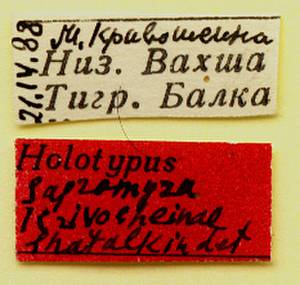 21.IV.88
М. Кривошеина
Низ. Вахша
Тигр. Балка
Holotypus
Sapromyza
krivosheinae
Shatalkin det